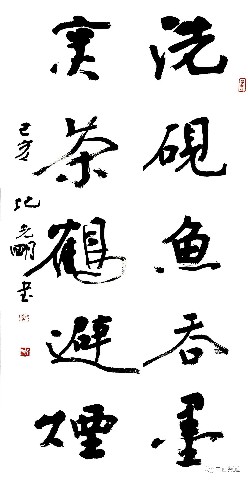 洗硯魚吞墨
烹茶鶴避煙
己亥
書